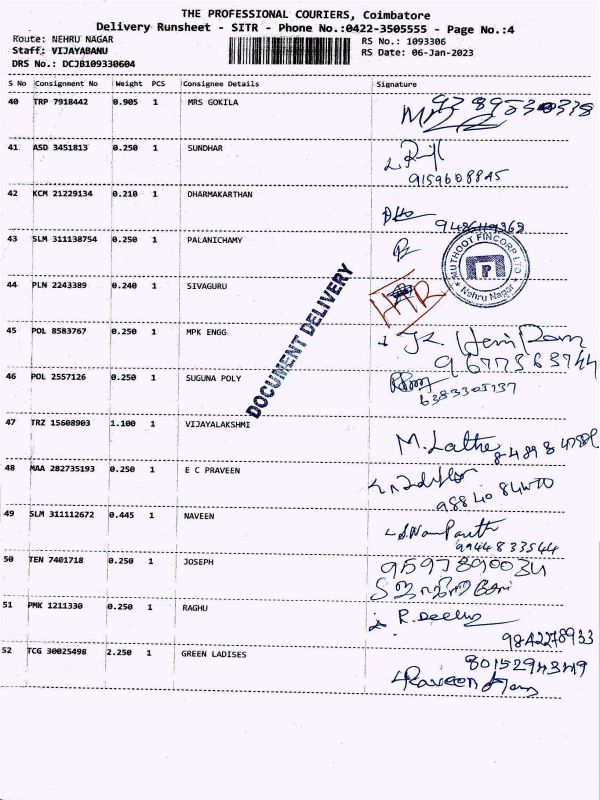 THE PROFESSIONAL COURIERS, Coimbatore
Delivery Runsheet - SITR - Phone No.:0422-3505555 - Page No.:4
Route: NEHRU NAGAR
RS No.: 1093306
Staff: VIJAYABANU
RS Date: 06-Jan-2023
DRS No.: DCJB109330604
S No Consignment No Weight PCS Consignee Details Signature
40 TRP 7918442 0.905 1 MRS GOKILA
41 ASD 3451813 0.250 1 SUNDHAR
9159608845
42 KCM 21229134 0.210 1 DHARMAKARTHAN
9486119362
43 SLM 311138754 0.250 1 PALANICHAMY
MUTHOOT FINCORP LTD
Nehru Nagar
44 PLN 2243389 0.240 1 SIVAGURU
DOCUMENT DELIVERY
45 POL 8583767 0.250 1 MPK ENGG
9677363744
46 POL 2557126 0.250 1 SUGUNA POLY
6383303737
47 TRZ 15608903 1.100 1 VIJAYALAKSHMI
M. Latha
48 MAA 282735193 0.250 1 E C PRAVEEN
49 SLM 311112672 0.445 1 NAVEEN
9944833544
50 TEN 7401718 0.250 1 JOSEPH
9597890034
51 PMK 1211330 0.250 1 RAGHU
9842278933
52 TCG 30025498 2.250 1 GREEN LADISES
8015294349